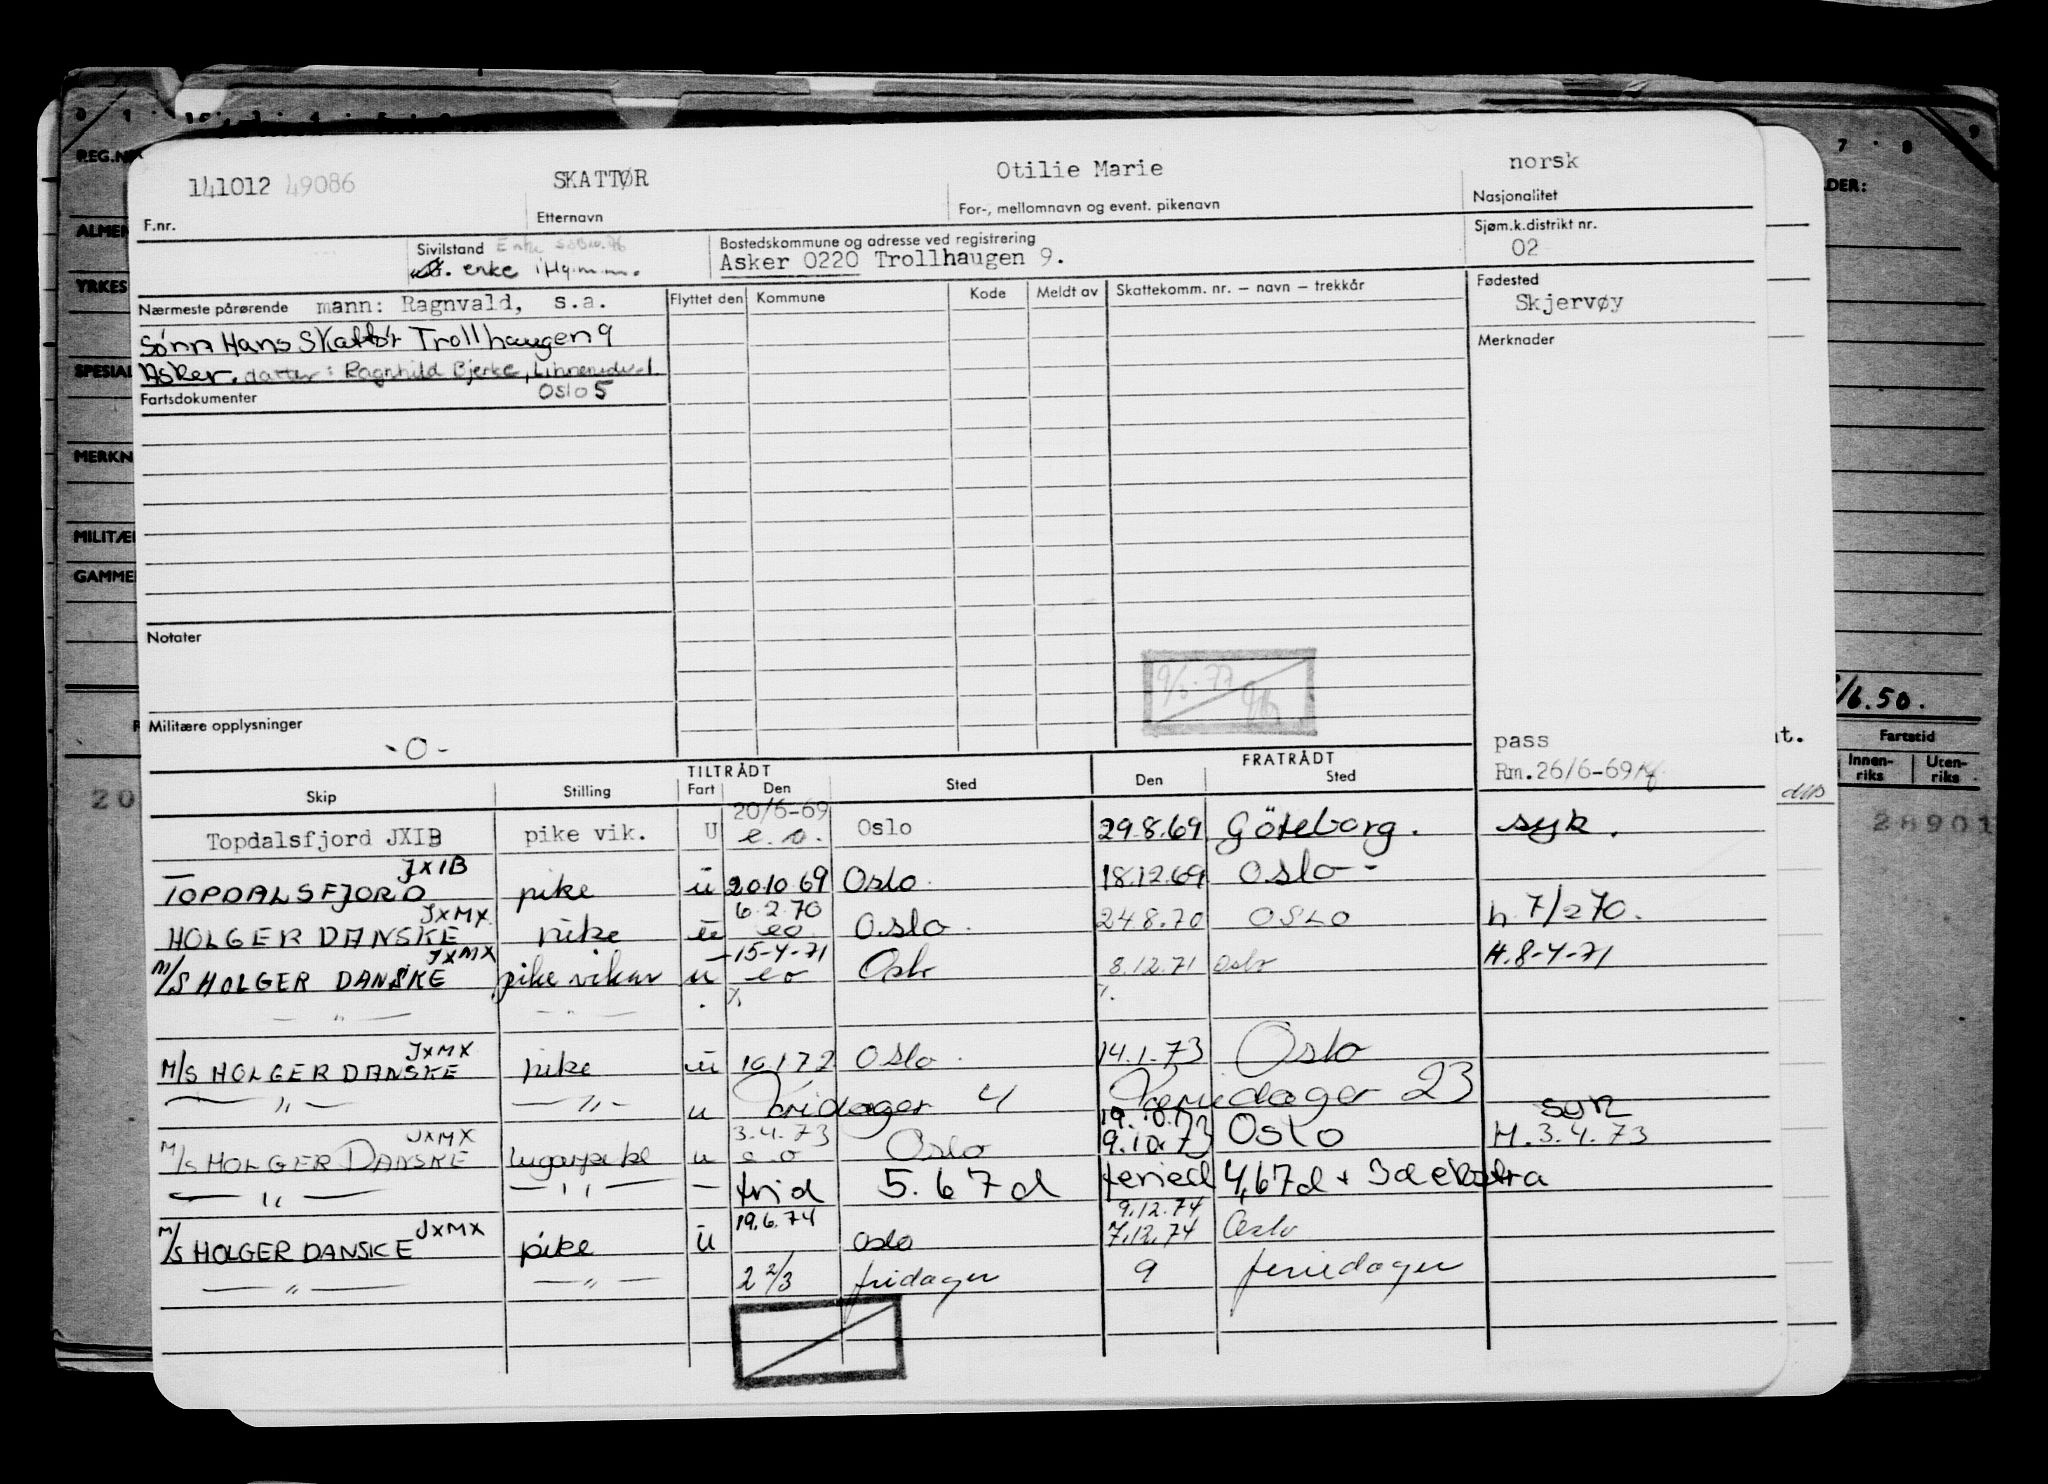 REG.NR.
141012 49086 SKATTØR Otilie Marie norsk
F.nr. Etternavn For-, mellomnavn og event. pikenavn Nasjonalitet
Sivilstand Enke
enke
Bostedskommune og adresse ved registrering
Asker 0220 Trollhaugen 9.
Sjøm.k.distrikt nr.
02
Nærmeste pårørende mann: Ragnvald, s.a.
Sønn Hans Skattør Trollhaugen 9
Asker. datter: Ragnhild Bjerke,
Oslo 5
Flyttet den Kommune Kode Meldt av Skattekomm. nr. – navn – trekkår
Fødested
Skjervøy
Merknader
Fartsdokumenter
Notater
Militære opplysninger
-O-
pass
Rm.26/6-69
TILTRÅDT FRATRÅDT
Skip Stilling Fart Den Sted Den Sted
Topdalsfjord JXIB pike vik. U 20/6-69 e.o. Oslo 29.8.69 Göteborg. syk.
TOPDALSFJORD JXIB pike u 20.10.69 Oslo. 18.12.69 Oslo-
HOLGER DANSKE JXMX pike u 6.2.70 eo Oslo. 24.8.70 OSLO h. 7/2 70.
M/S HOLGER DANSKE JXMX pike vikar u 15-4-71 eo Oslo 8.12.71 Oslo H.8-4-71
— " — — " —
M/S HOLGER DANSKE JXMX pike u 10.1.72 Oslo. 14.1.73 Oslo
— " — — " — u Fridager 4 Feriedager 23
M/S HOLGER DANSKE JXMX lugarpike u 3.4.73 e o Oslo 9.10.73 Oslo syk H.3.4.73
— " — — " — — frid 5.67d feried 4,67d + 3d ekstra
M/S HOLGER DANSKE JXMX pike u 19.6.74 Oslo 9.12.74 7.12.74 Oslo
— " — — " — 2 2/3 fridager 9 feriedager
ALMEN
YRKES
SPESIAL
MERKN
MILITÆ
GAMME
20
7 8 9
DER:
/6.50.
nt.
Fartstid
Innen-riks Uten-riks
28901